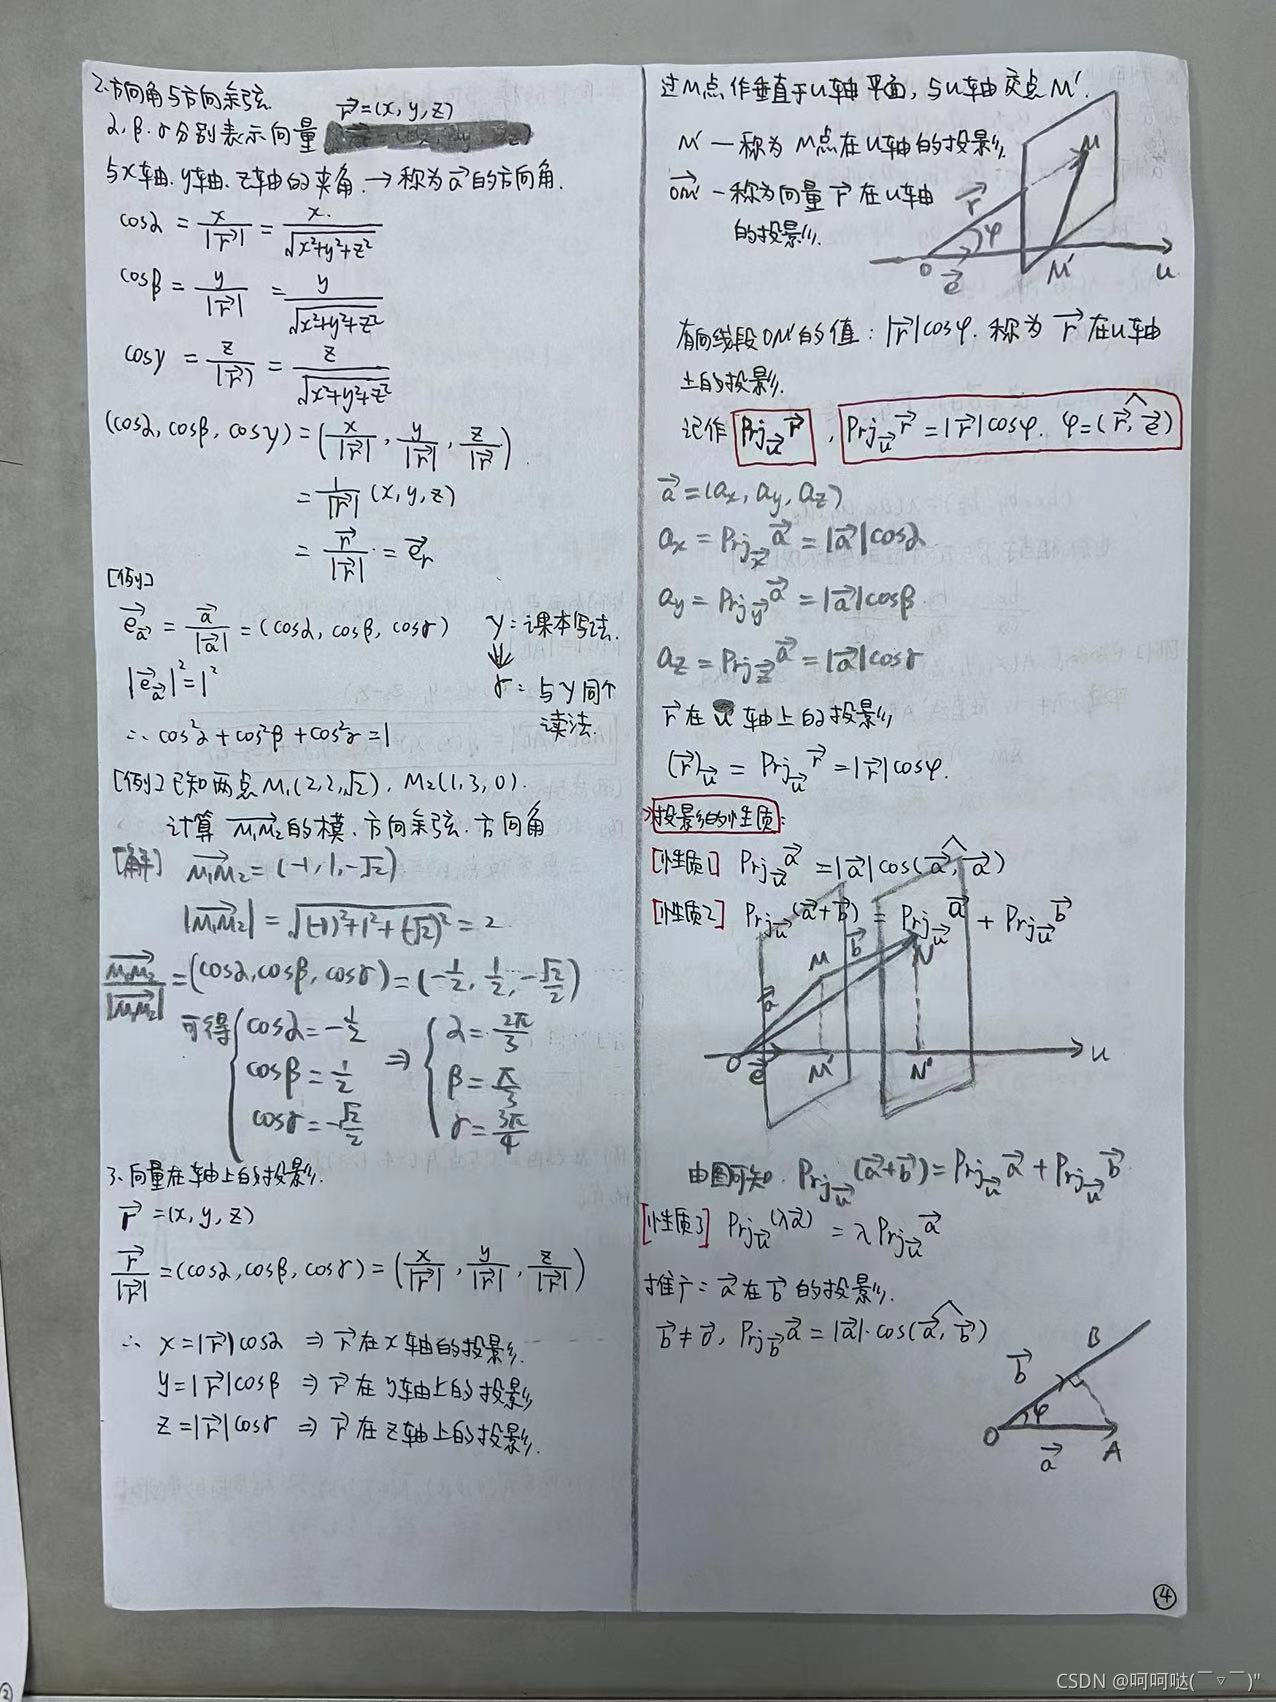 2.方向角与方向余弦
α,β,γ分别表示向量 r⃗=(x,y,z)
与x轴、y轴、z轴的夹角.→称为a⃗的方向角.
cosα = x/|r⃗| = x/√(x²+y²+z²)
cosβ = y/|r⃗| = y/√(x²+y²+z²)
cosγ = z/|r⃗| = z/√(x²+y²+z²)
(cosα,cosβ,cosγ)=(x/|r⃗|, y/|r⃗|, z/|r⃗|).
= 1/|r⃗| (x,y,z)
= r⃗/|r⃗| = e⃗r
[例]
e⃗a⃗ = a⃗/|a⃗| = (cosα,cosβ,cosγ) γ:课本写法.
|e⃗a⃗|²=1² γ:与γ同个
读法.
∴ cos²α+cos²β+cos²γ=1
[例]已知两点M₁(2,2,√2), M₂(1,3,0).
计算 M₁M₂→的模、方向余弦、方向角
[解] M₁M₂→=(-1,1,-√2)
|M₁M₂→| = √((-1)²+1²+(-√2)²) = 2
M₁M₂→/|M₁M₂→| =(cosα,cosβ,cosγ)=(-1/2, 1/2, -√2/2)
可得{cosα=-1/2 ⇒ {α=2π/3
cosβ=1/2 β=π/3
cosγ=-√2/2 γ=3π/4
3.向量在轴上的投影.
r⃗=(x,y,z)
r⃗/|r⃗| =(cosα,cosβ,cosγ)=(x/|r⃗|, y/|r⃗|, z/|r⃗|)
∴ x=|r⃗|cosα ⇒ r⃗在x轴的投影.
y=|r⃗|cosβ ⇒ r⃗在y轴上的投影
z=|r⃗|cosγ ⇒ r⃗在z轴上的投影.
过M点作垂直于u轴平面,与u轴交点M'.
M'—称为M点在u轴的投影.
OM'→—称为向量r⃗在u轴
的投影.
M
r⃗
φ
O e⃗ M' u
有向线段OM'的值:|r⃗|cosφ.称为r⃗在u轴
上的投影.
记作 Prju⃗ r⃗ , Prju⃗ r⃗=|r⃗|cosφ. φ=(r⃗,^e⃗)
a⃗=(ax,ay,az)
ax=Prjx⃗ a⃗=|a⃗|cosα
ay=Prjy⃗ a⃗=|a⃗|cosβ
az=Prjz⃗ a⃗=|a⃗|cosγ
r⃗在u轴上的投影
(r⃗)u⃗=Prju⃗ r⃗=|r⃗|cosφ.
投影的性质:
[性质1] Prju⃗ a⃗=|a⃗|cos(a⃗,^a⃗)
[性质2] Prju⃗(a⃗+b⃗)=Prju⃗ a⃗+Prju⃗ b⃗
M b⃗ N
a⃗
O e⃗ M' N' u
由图可知. Prju⃗(a⃗+b⃗)=Prju⃗ a⃗+Prju⃗ b⃗
[性质3] Prju⃗(λa⃗)=λPrju⃗ a⃗
推广:a⃗在b⃗的投影.
b⃗≠0⃗, Prjb⃗ a⃗=|a⃗|·cos(a⃗,^b⃗)
B
b⃗
φ
O a⃗ A
④
②
CSDN @呵呵哒(￣▽￣)"